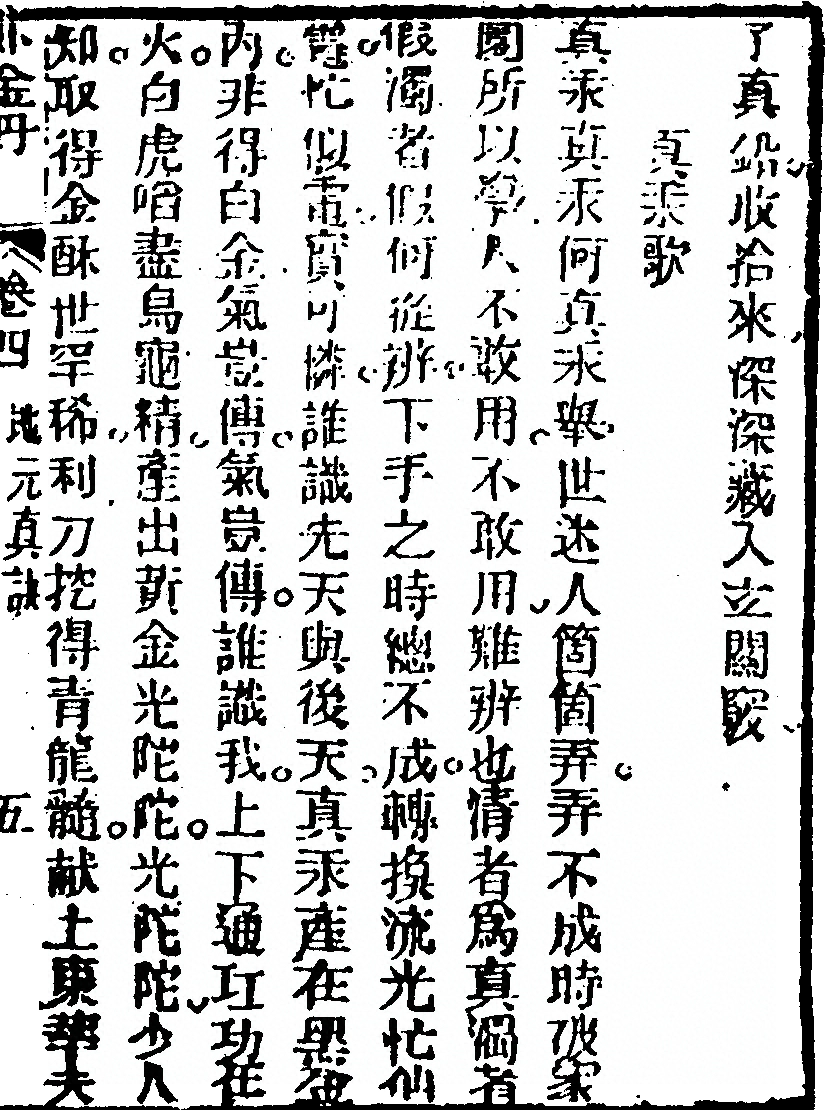 了真鉛收拾來深深藏入立關竅
真汞歌
真汞真汞何真汞舉世迷人箇箇弄弄不成時破家
園所以學人不敢用不敢用難辨也清者為真濁者
假濁者假何從辨下手之時總不成轉換流光忙似
電忙似電實可憐誰識先天與後天真汞產在黑鉛
內非得白金氣豈傳氣豈傳誰識我上下通紅功在
火白虎啗盡烏龜精產出黃金光陀陀光陀陀少人
知取得金酥世罕稀利刀挖得青龍髓献土東華夫
外金丹 卷四 地元真訣 五